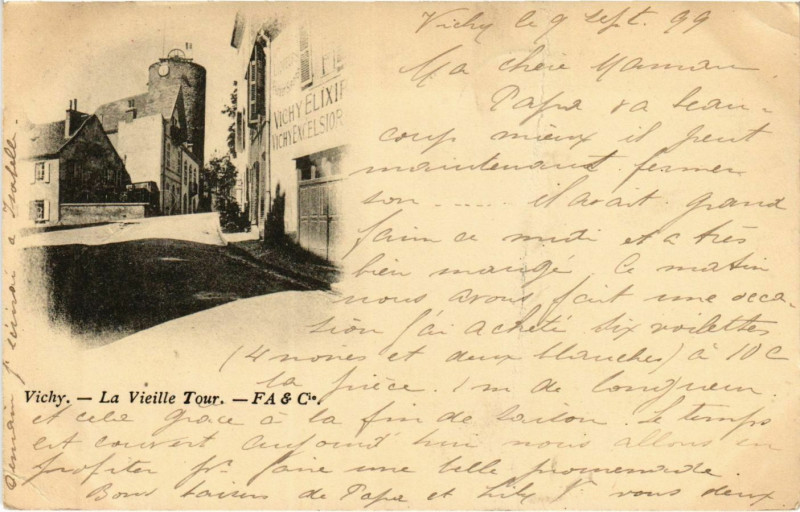 Vichy le 9 Sept. 99
Ma chère Maman
Papa va beau-
coup mieux il peut
maintenant fermer
son ..... il avait grand
faim ce midi et a très
bien mangé. Ce matin
nous avons fait une occa-
sion j'ai acheté six voilettes
(4 noires et deux blanches) à 10c
la pièce. 1 m de longueur.
et cela grâce à la fin de saison. Le temps
est couvert aujourd'hui nous allons en
profiter pr. faire une belle promenade.
Bons baisers de Papa et Lily pr vous deux
Demain j'écrirai à Isabelle.
VICHY ELIXIR
VICHY EXCELSIOR
Vichy. — La Vieille Tour. — FA & Cie.